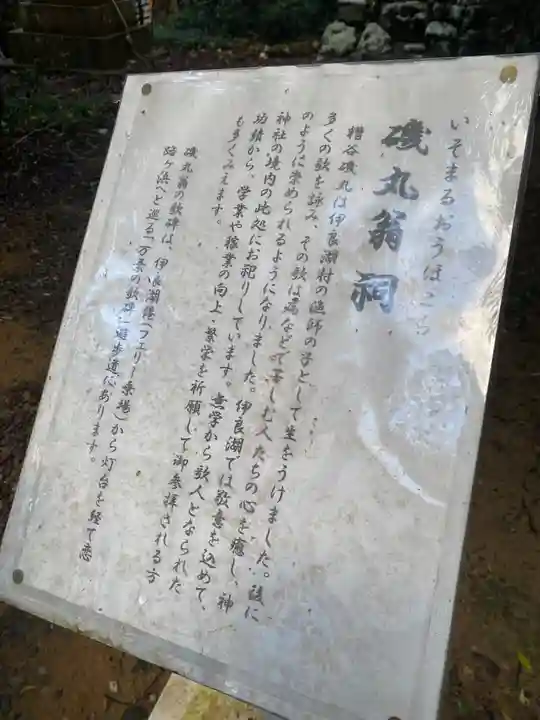 いそまるおうほこら
磯丸翁祠
糟谷磯丸は伊良湖村の漁師の子として生をうけました。後に
多くの歌を詠み、その歌は病などで苦しむ人たちの心を癒し、神
のように崇められるようになりました。伊良湖では敬意を込めて、
神社の境内の此処にお祀りしています。無学から歌人となられた
功績から、学業や稼業の向上・繁栄を祈願して御参拝される方
も多くみえます。
磯丸翁の歌碑は、伊良湖港(フェリー乗場)から灯台を経て恋
路ヶ浜へと巡る「万葉の歌碑」遊歩道にあります。